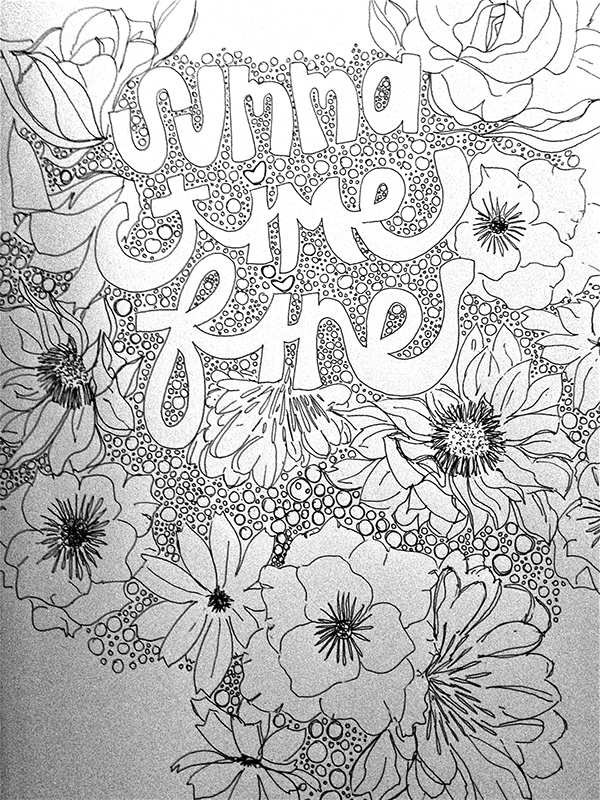 summa
time
fine